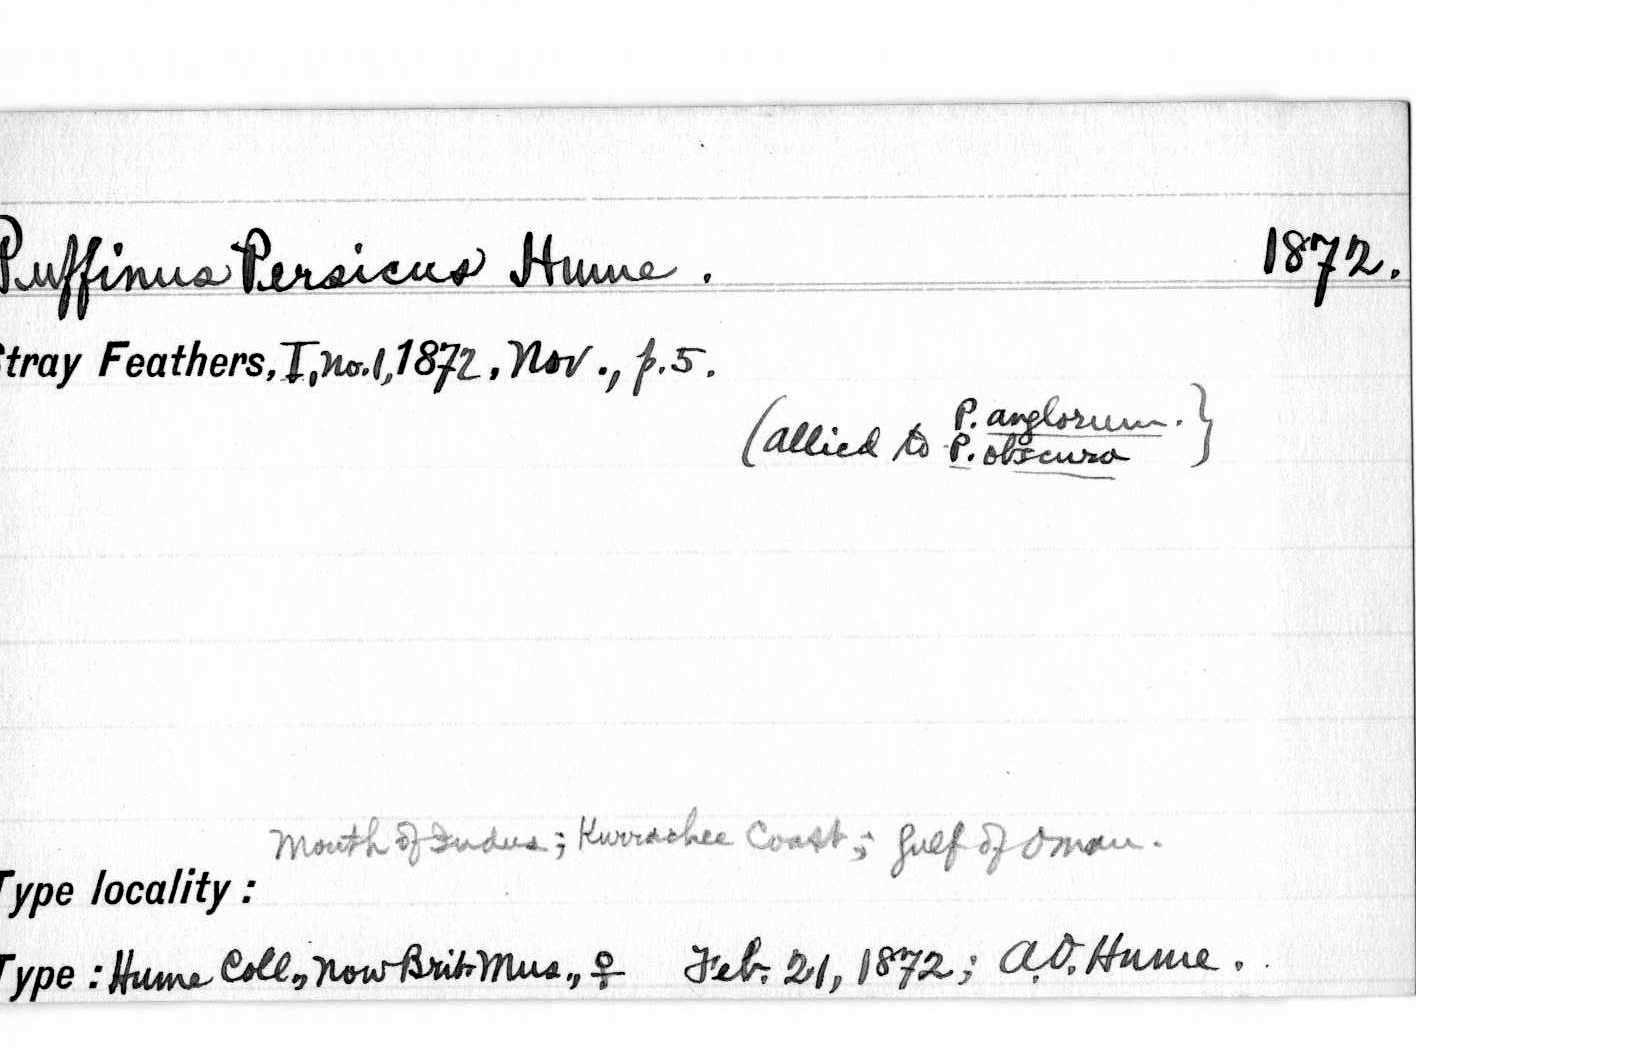 Puffinus Persicus Hume. 1872.
Stray Feathers, I, no. 1, 1872, Nov., p. 5.
(allied to P. anglorum. }
P. obscura
Mouth of Indus; Kurrachee Coast; Gulf of Oman.
Type locality:
Type: Hume Coll., now Brit. Mus., ♀ Feb. 21, 1872; A.O. Hume.